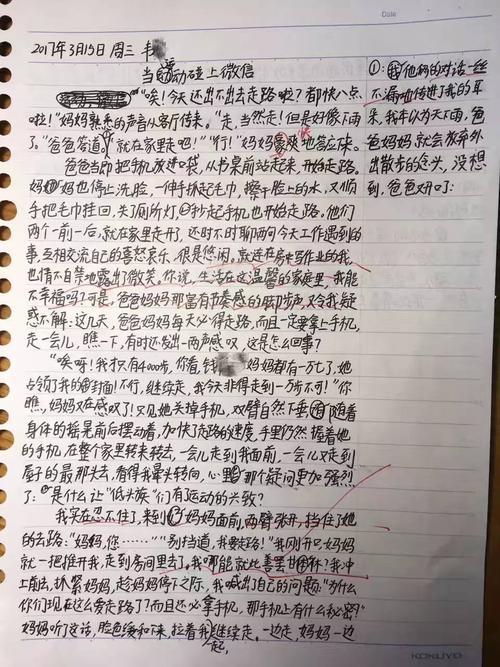 Date
2017年3月15日 周三
当运动碰上微信
“唉!今天还出不出去走路啦?都快八点
啦!”妈妈熟悉的声音从客厅传来。“走,当然走!但是好像下雨
了。”爸爸答道,“就在家里走吧!”“行!”妈妈爽快地答应来。
爸爸当即把手机放进口袋,从书桌前站起来,开始走路。
妈妈也停止洗脸,一伸手抓起毛巾,擦干脸上的水,又顺
手把毛巾挂回,关了厕所灯,抄起手机也开始走路。他们
两个一前一后,就在家里走开了,还时不时聊两句今天工作遇到的
事,互相交流自己的喜怒哀乐,很是悠闲。就连在房中写作业的我,
也情不自禁地露出了微笑。你说,生活在这温馨的家庭里,我能
不幸福吗?可是,爸爸妈妈那富有节奏感的脚步声,又令我疑
惑不解:这几天,爸爸妈妈每天必得走路,而且一定要拿上手机,
走一会儿,瞧一下,有时还发出一两声感叹,这是怎么回事?
“唉呀!我才只有4000步,你看,钱妈妈都有一万七了,她
占领了我的封面!不行,继续走,我今天非得走到一万步不可!”你
瞧,妈妈又在感叹了!只见她关掉手机,双臂自然下垂,随着
身体的摇晃前后摆动着,加快了走路的速度,手里仍然握着她
的手机,在整个家里转来转去,一会儿走到我面前,一会儿又走到
屋子的最那头去,看得我晕头转向,心里那个疑问更加强烈
了:“是什么让“低头族”们有运动的兴致?
我实在忍不住了,来到妈妈面前,两臂张开,挡住了她
的去路:“妈妈,您……”“别挡道,我要走路!”我刚开口,妈妈
就一把推开我,走到房间里去了。我哪能就此善罢甘休?我冲
上前去,抓紧妈妈,趁妈妈停下之际,我喊出了自己的问题:“为什么
你们现在这么爱走路了?而且还必拿手机,那手机上有什么秘密?”
妈妈听了这话,脸色缓和下来,拉着我继续走。一边走,妈妈一边
一起,
①:他们的对话一丝
不漏地传进了我的耳
朵,我本以为下雨,爸
爸妈妈就会放弃外
出散步的念头,没想
到,爸爸又开口了:
KOKUYO